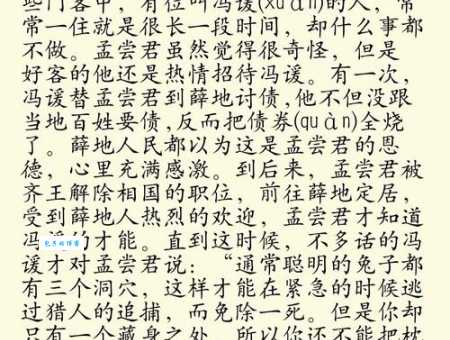 些门客中，有位叫冯谖(xuān)的人，常
常一住就是很长一段时间，却什么事都
不做。孟尝君虽然觉得很奇怪，但是
好客的他还是热情招待冯谖。有一次，
冯谖替孟尝君到薛地讨债,他不但没跟
当地百姓要债,反而把债券(quàn)全烧
了。薛地人民都以为这是孟尝君的恩
德，心里充满感激。到后来，孟尝君被
齐王解除相国的职位，前往薛地定居，
受到薛地人热烈的欢迎，孟尝君才知道
冯 的才能。直到这时候，不多话的冯
谖才对孟尝君说：“通常聪明的兔子都
有三个洞穴，这样才能在紧急的时候逃
过猎人的追捕，而免除一死。但是你却
只有一个藏身之处，所以你还不能把枕